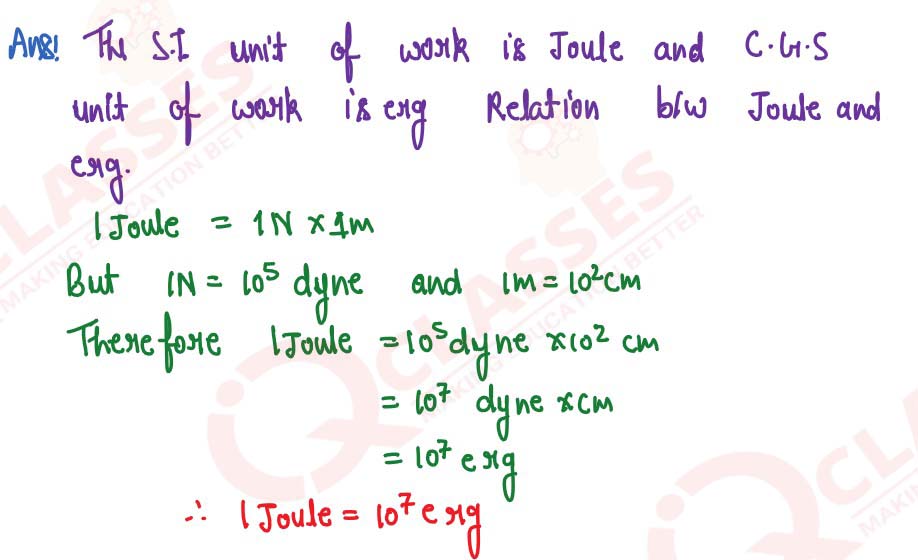 Ans! The S.I unit of work is Joule and C.G.S
unit of work is erg Relation b/w Joule and
erg.
1 Joule = 1N x 1m
But 1N = 10⁵ dyne and 1m = 10²cm
Therefore 1 Joule = 10⁵dyne x10² cm
= 10⁷ dyne xcm
= 10⁷ erg
∴ 1 Joule = 10⁷ erg
CLASSES
MAKING EDUCATION BETTER
IQ CLASSES
MAKING EDUCATION BETTER
IQ CLASSES